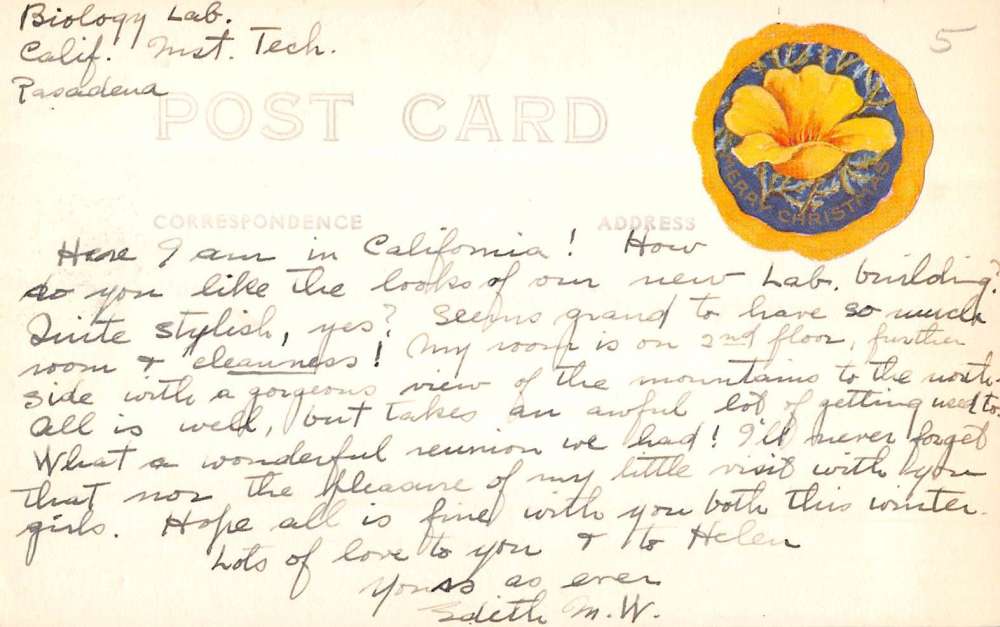 Biology Lab.
Calif. Inst. Tech.
Pasadena
5
POST CARD
MERRY CHRISTMAS
CORRESPONDENCE ADDRESS
Here I am in California! How
do you like the looks of our new Lab. building?
Quite stylish, yes? Seems grand to have so much
room & cleanness! My room is on 2nd floor, further
side with a gorgeous view of the mountains to the north.
All is well, but takes an awful lot of getting used to.
What a wonderful reunion we had! I'll never forget
that nor the pleasure of my little visit with you
girls. Hope all is fine with you both this winter.
Lots of love to you & to Helen
Yours as ever
Edith M.W.